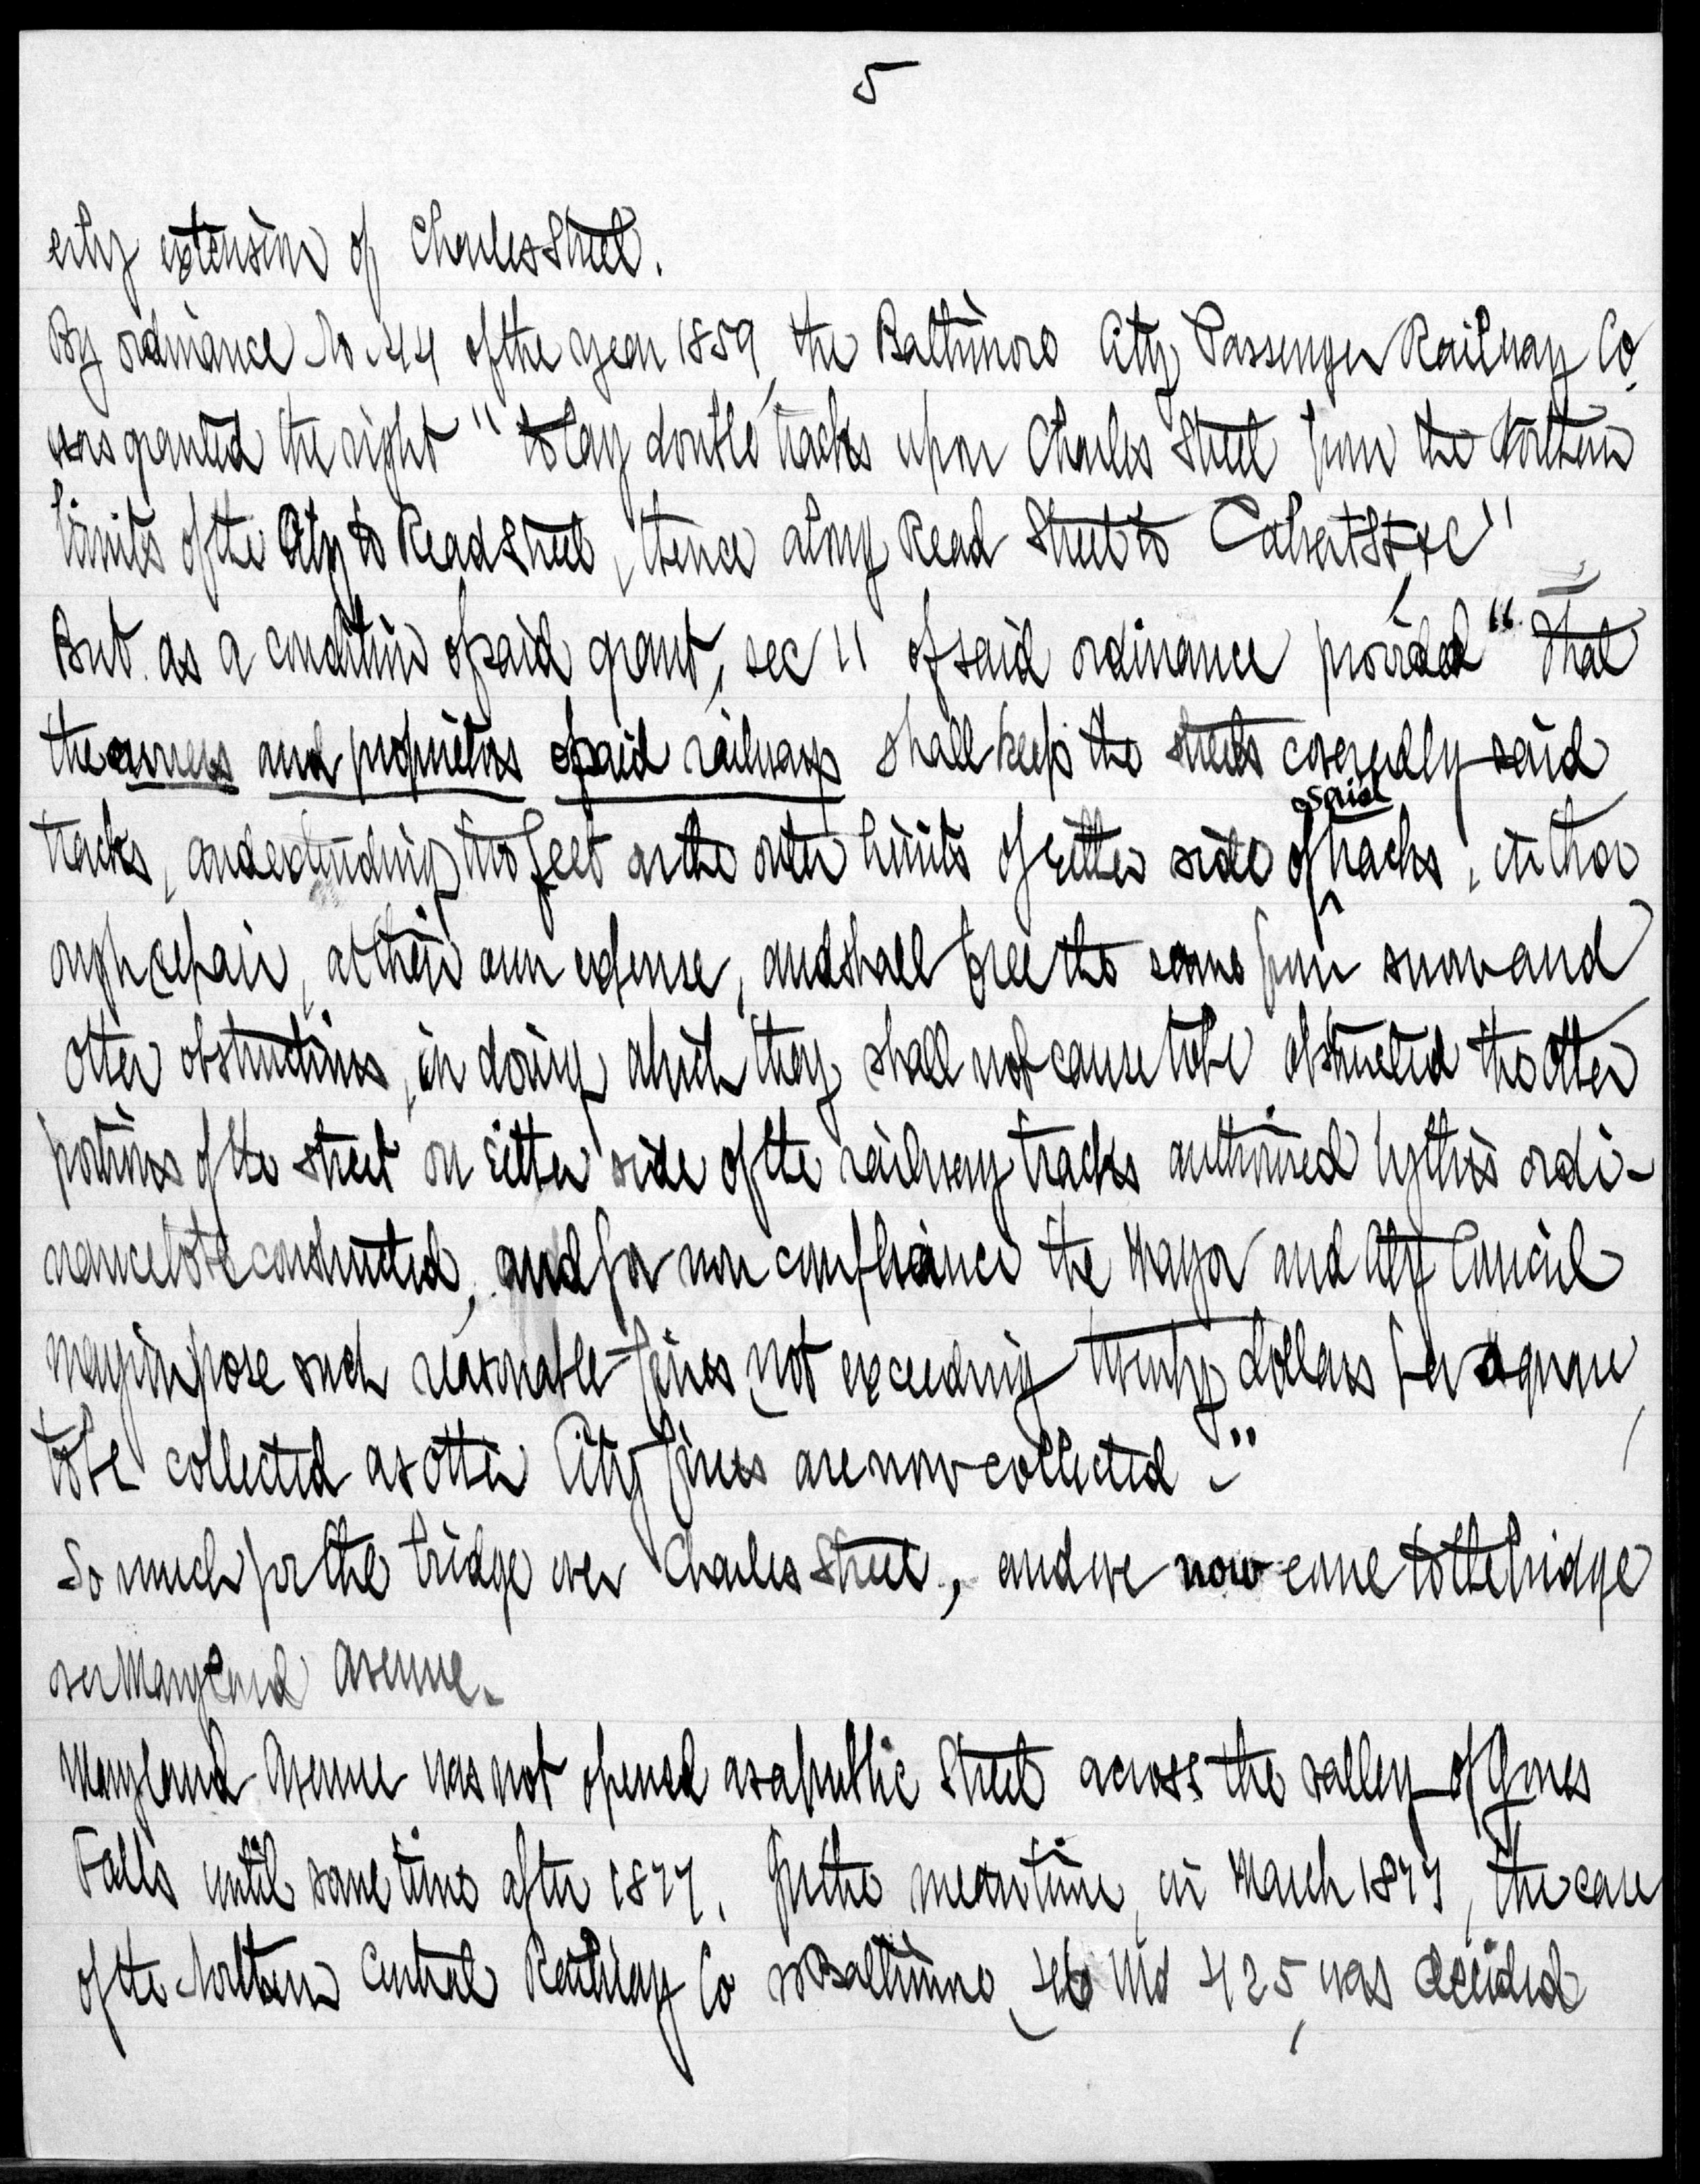 5
city extension of Charles Street.
By ordinance No 44 of the year 1859, the Baltimore City Passenger Railway Co.
was granted the right "to lay double tracks upon Charles Street from the Northern
limits of the City to Read Street, thence along Read Street to Calvert St, &c"
But as a condition of said grant, sec 11 of said ordinance provided "That
the owners and proprietors of said railways shall keep the streets covered by said
tracks, and extending two feet on the outer limits of either side of said tracks, in thor
ough repair, at their own expense, and shall free the same from snow and
other obstructions, in doing which they shall not cause to be obstructed the other
portions of the street on either side of the railway tracks authorised by this ordi-
nance to be constructed; and for non compliance the Mayor and City Council
may impose such reasonable fines not exceeding twenty dollars per square,
to be collected as other City fines are now collected."
So much for the bridge over Charles Street, and we now come to the bridge
over Maryland Avenue.
Maryland Avenue was not opened as a public Street across the valley of Jones
Falls until some time after 1877. In the meantime, in March 1877, the case
of the Northern Central Railway Co vs Baltimore, 46 Md 425, was decided